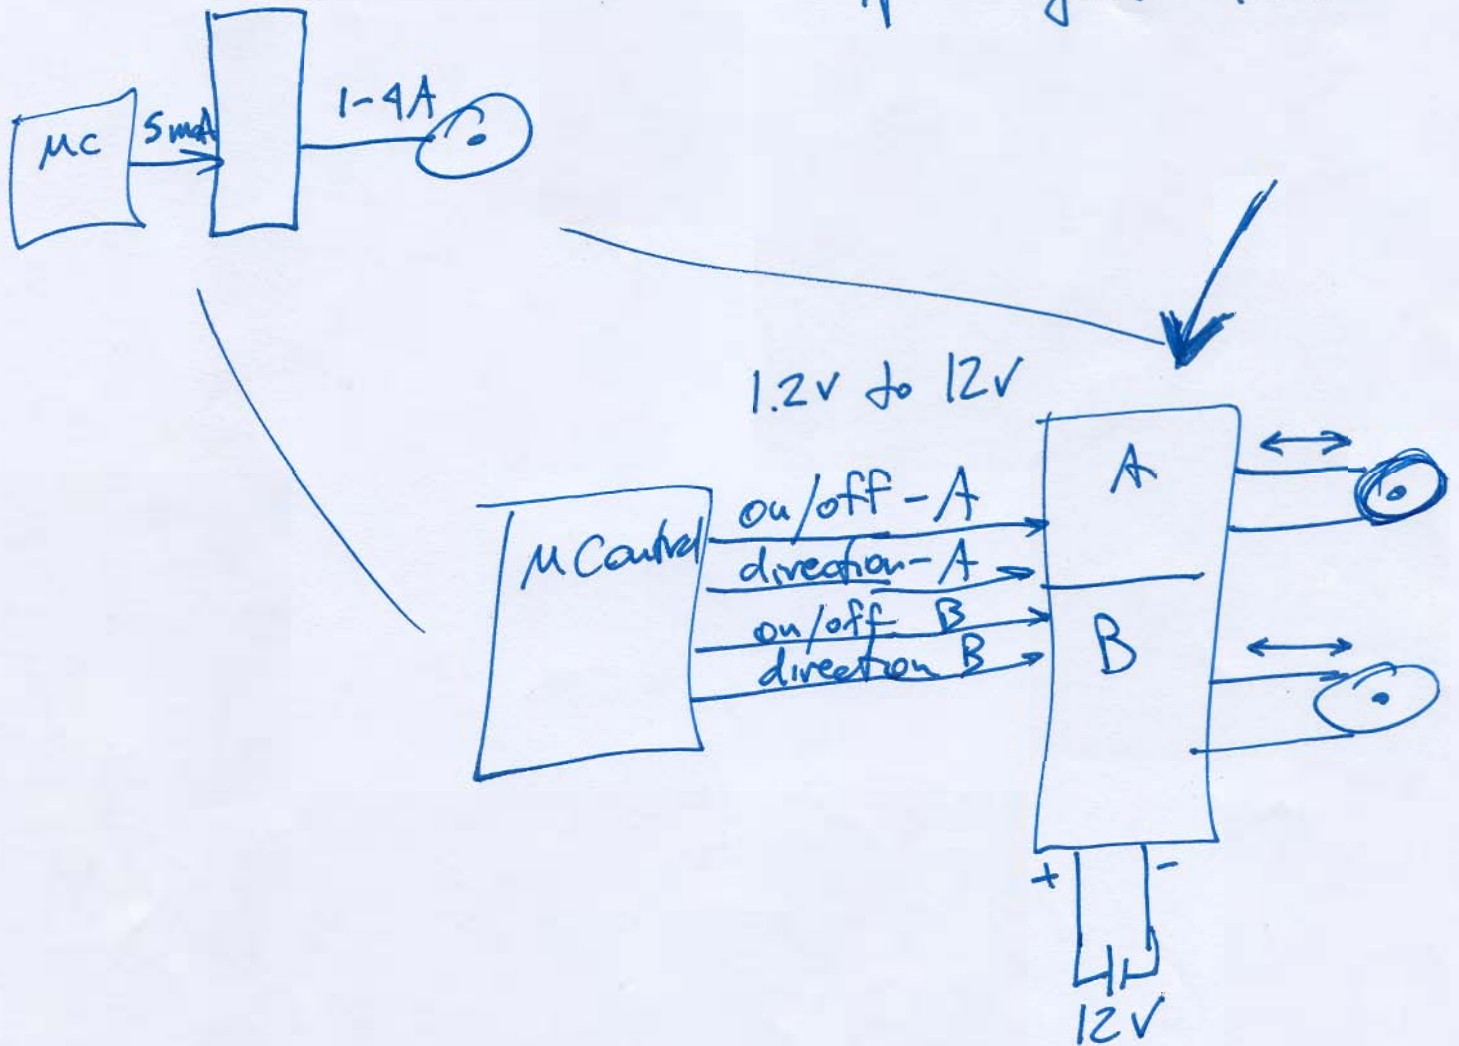 μC
5mA
1-4A
1.2V to 12V
μControl
on/off - A
direction - A
on/off B
direction B
A
B
+ -
12V